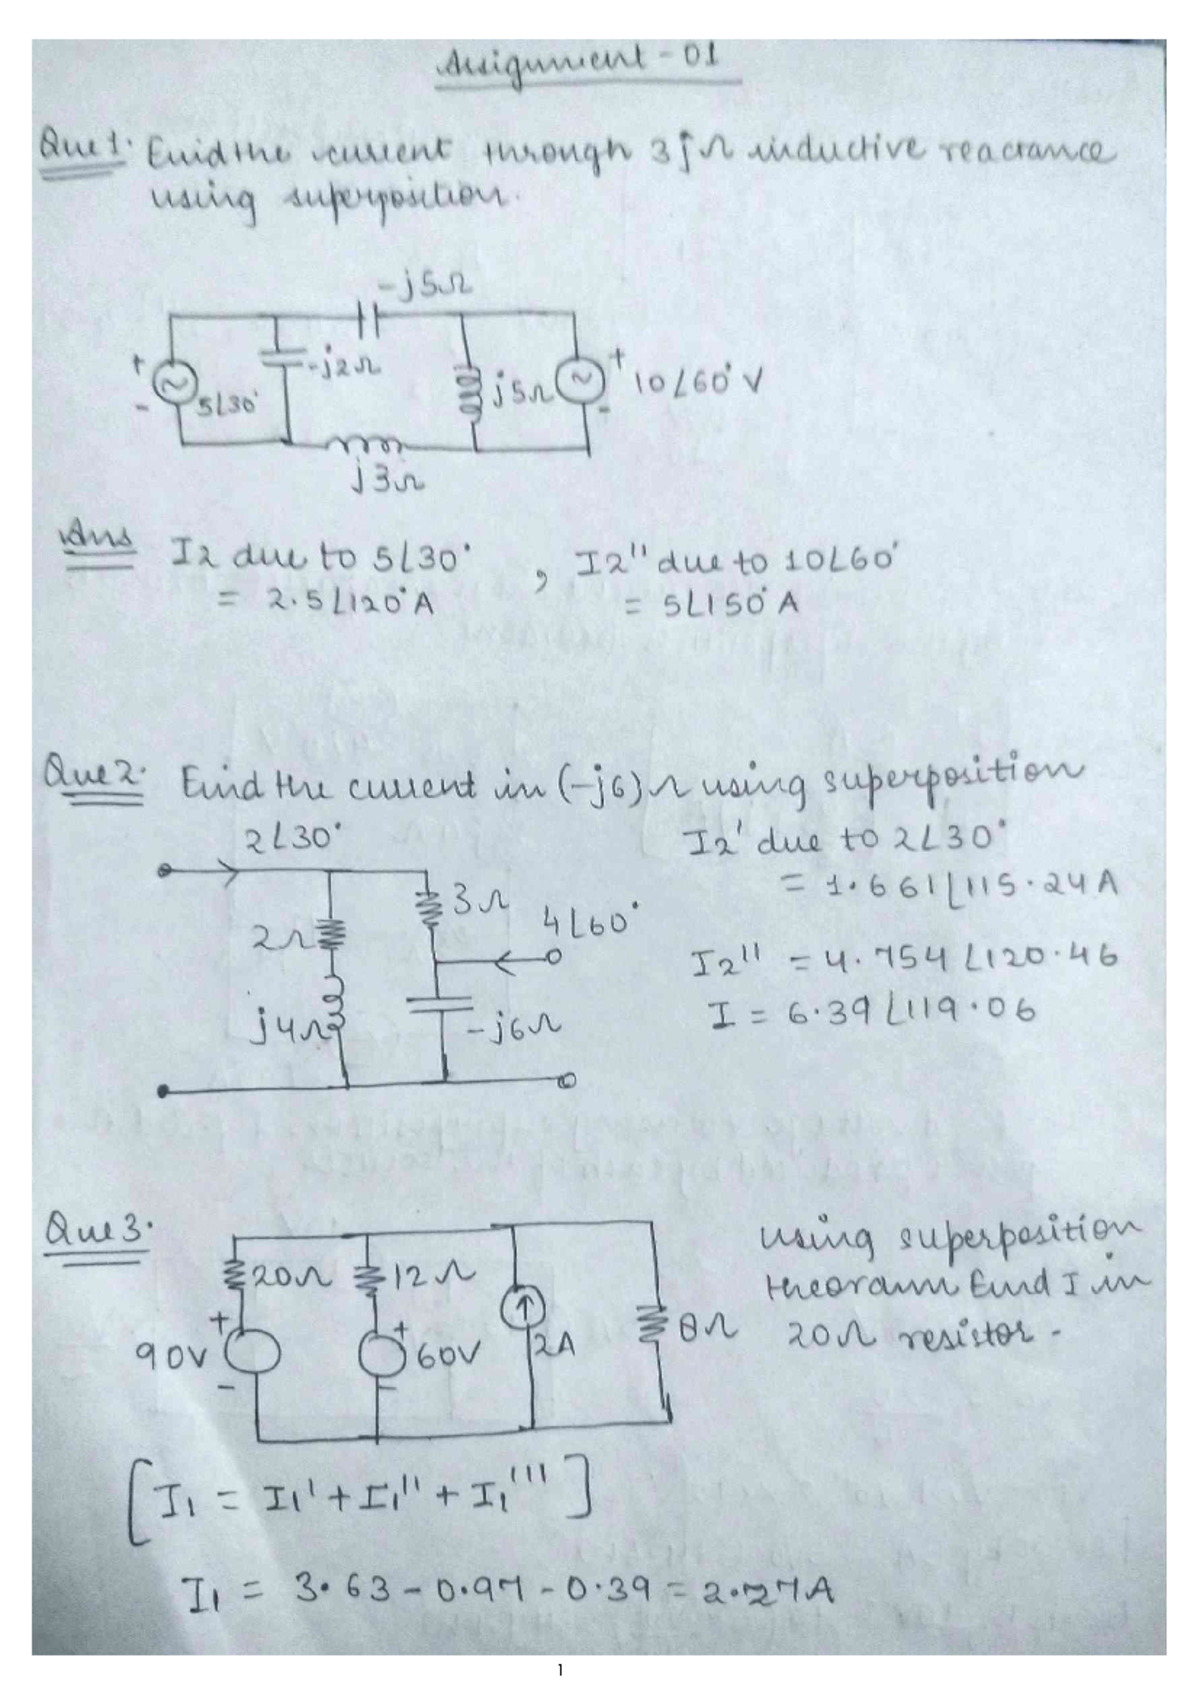 Assignment - 01
Que 1. Find the current through 3j Ω inductive reactance
using superposition.
-j5Ω
+
-j2Ω
j5Ω
+
10∠60° V
-
5∠30°
-
j3Ω
Ans I2 due to 5∠30° , I2'' due to 10∠60°
= 2.5∠120° A = 5∠150° A
Que 2. Find the current in (-j6) Ω using superposition
2∠30°
I2' due to 2∠30°
= 1.661∠115.24 A
3Ω
4∠60°
2Ω
I2'' = 4.754∠120.46
j4Ω
-j6Ω
I = 6.39∠119.06
Que 3.
using superposition
20Ω
12Ω
theoram Find I in
+
+
90V
60V
2A
8Ω
20Ω resistor -
-
-
[I1 = I1' + I1'' + I1''']
I1 = 3.63 - 0.97 - 0.39 = 2.27A
1